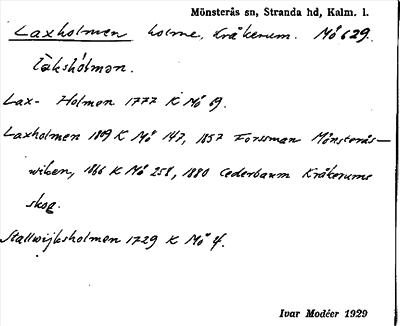 Mönsterås sn, Stranda hd, Kalm. l.
Laxholmen holme, Kråkerum. Mö 629.
Laxholmen 1809 K Mö 147, 1857 Forssman Mönsterås-
wiken, 1866 K Mö 258, 1880 Cederbaum Kråkerums
skog.
Stallwijksholmen 1729 K Mö 4.
Lax- Holmen 1777 K Mö 19.
Ivar Modéer 1929